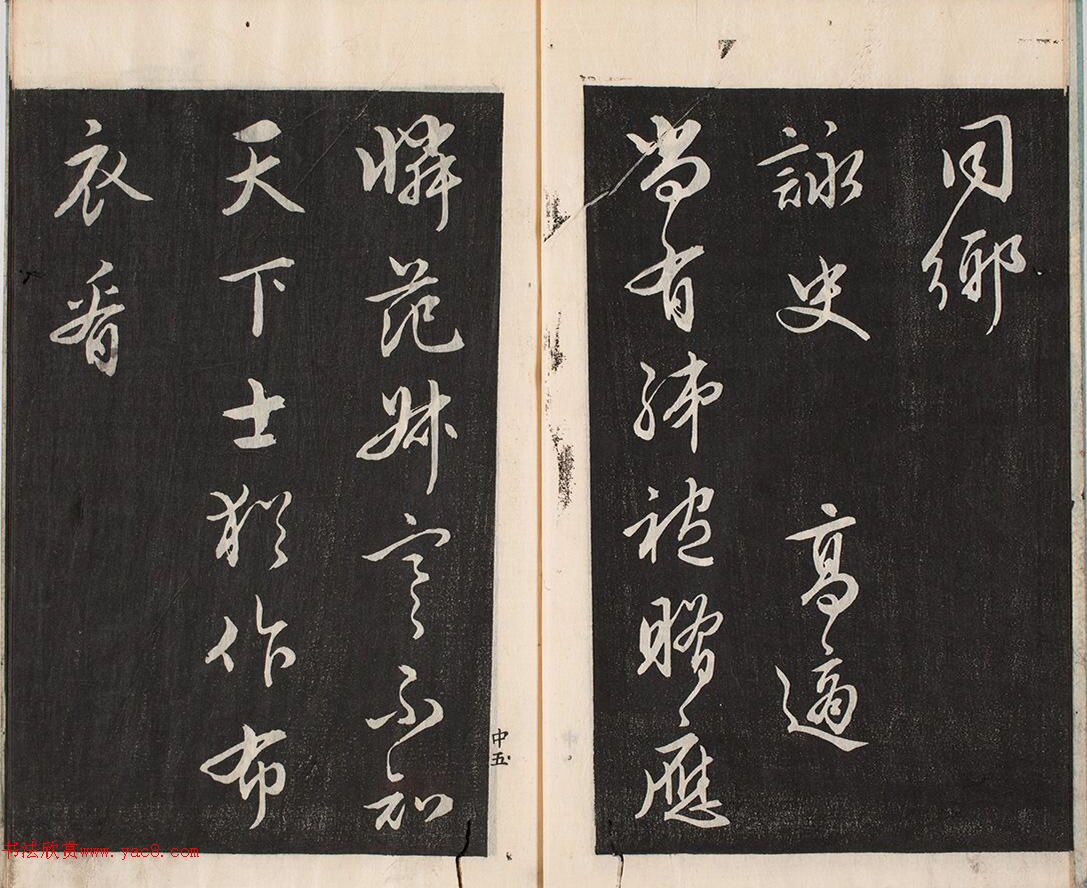 同鄉
詠史 高適
尚有綈袍贈應
憐范叔寒不知
天下士猶作布
衣看
中五
书法欣赏www.yac8.com